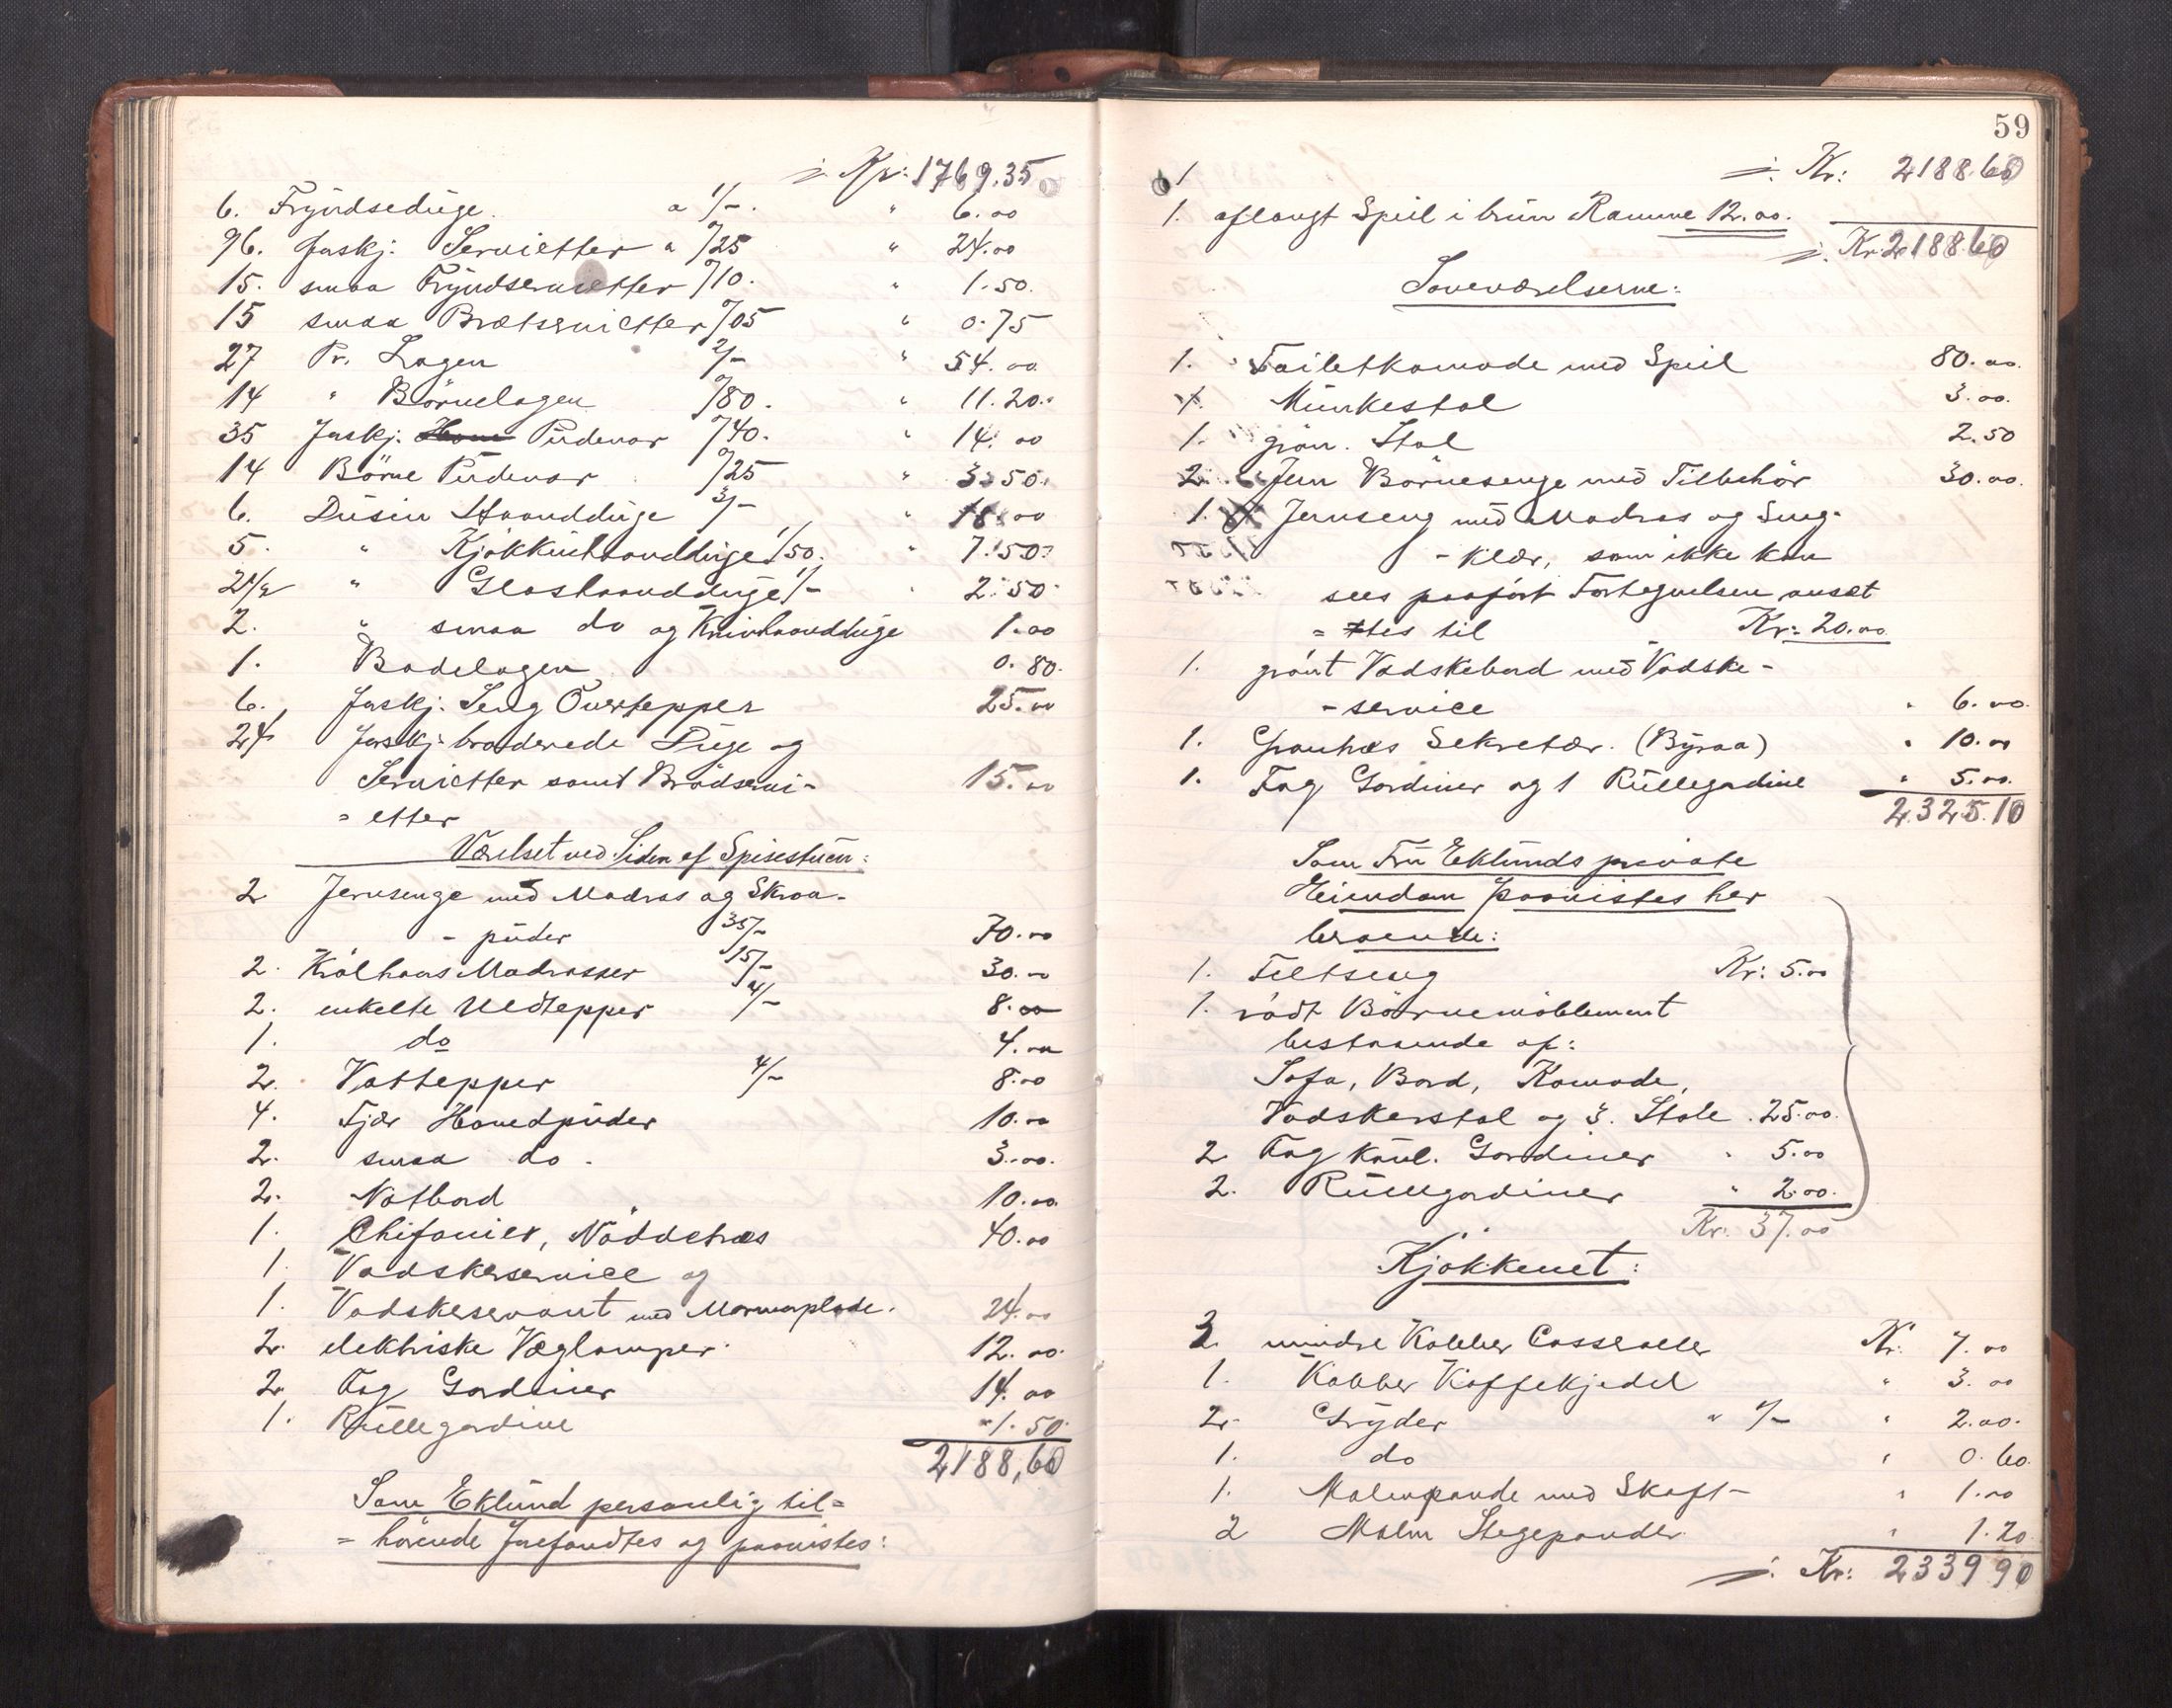 Kr: 1769.35
6. Fryndseduge. a 1/-. " 6.00
96. forskj. Servietter a "/25 " 24.00
15. smaa Fryndservietter "/10. " 1.50.
15 smaa Bretservietter "/05 " 0.75
27 Pr. Lagen 2/- " 54.00
14 " Börnelagen "/80. " 11.20.
35 forskj. Pudevar "/40. " 14.00
14 Börne Pudevar "/25 " 3.50.
6. Dusin Haandduge 3/- " 18.00
5. " Kjökkenhaandduge 1/50. " 7.50.
2 1/2 " Glashaandduge 1/- " 2.50
2. " smaa do og Knivhaandduge 1.00
1. Badelagen 0.80.
6. forskj. Seng Overtepper 25.00
24 forskj. broderede Duge og
Servietter samt Brödservi-
= etter 15.00
Værelset ved Siden af Spisestuen:
2 Jernsenge med Madras og Skraa-
- puder 35/- 70.00
2. Krölhaars Madrasser 15/- 30.00
2. enkelte Uldtepper 4/- 8.00
1. do 4.00
2. Vattepper 4/- 8.00
4. Fjær Hovedpuder 10.00
2. smaa do. 3.00.
2. Natbord 10.00.
1. Chifonier, Nöddetræs 40.00
1. Vadskerservice og
1. Vadskeservant med Marmorplade. 24.00
2. elektriske Væglamper. 12.00.
2 Fag Gardiner 14.00
1. Rullegardine " 1.50.
2188,60
Som Eklund personlig til=
= hörende forefandtes og paavistes:
59
1
Kr: 2188.60
1. aflangt Speil i brun Ramme 12.00.
Kr. 2188.60
Soveværelserne:
1. Toiletkomode med Speil 80.00.
1. Munkestol 3.00.
1. grön. Stol 2.50
2. Jern Börnesenge med Tilbehör 30.00.
1. Jernseng med Madras og Seng-
- klær, som ikke kan
sees paafört Fortegnelsen ansæt
= tes til Kr: 20.00
1. grönt Vadskebord med Vadske-
- service " 6.00.
1. Grantræs Sekretær. (Byraa) " 10.00
1. Fag Gardiner og 1 Rullegardine " 5.00.
2325.10
Som Fru Eklunds private
Eiendom paavistes her
beroende:
1. Feltseng Kr: 5.00
1. rödt Börnemöblement
bestaaende af:
Sofa, Bord, Komode,
Vadskerstol og 3. Stole. 25.00.
2 Fag Gardiner " 5.00
2. Rullegardiner " 2.00.
Kr. 37.00
Kjökkenet:
3. mindre Kobber Casseroller Kr. 7.00
1. Kobber Kaffekjedel " 3.00
2. Gryder a 1/- " 2.00.
1. do " 0.60.
1. Malmpande med Skaft " 1.00
2 Malm Stegepander " 1.20
Kr: 2339 90